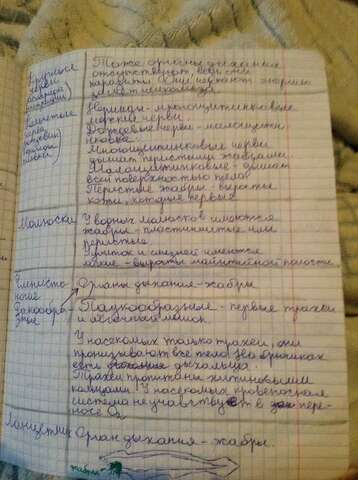 Круглые черви
Тоже органы дыхания
отсутствуют, ведь они
паразиты и они черпают энергию
Кольчатые черви
Нереиды - многощетинковые
морские черви.
Дождевые черви - малощетин-
ковые
Многощетинковые черви
дышат перистыми жабрами.
Малощетинковые - дышат
всей поверхностью тела
Перистые жабры - выросты
кожи, которые первые
Молюски
У водных молюсков имеются
жабры - пластинчатые или
перистые.
Улиток и слизней имеются
лёгкие - выросты мантийной полости
Членисто-
ногие
Ракообраз-
ные
Органы дыхания - жабры
Паукообразные - первые трахеи
и лёгочный мешок
У насекомых только трахеи, они
пронизывают все тело. На брюшках
есть дыхальца.
Трахеи пропитаны хитиновыми
кольцами. У насекомых кровеносная
система не участвует в пере-
носе O₂
Ланцетник
Орган дыхания - жабры.
жабры